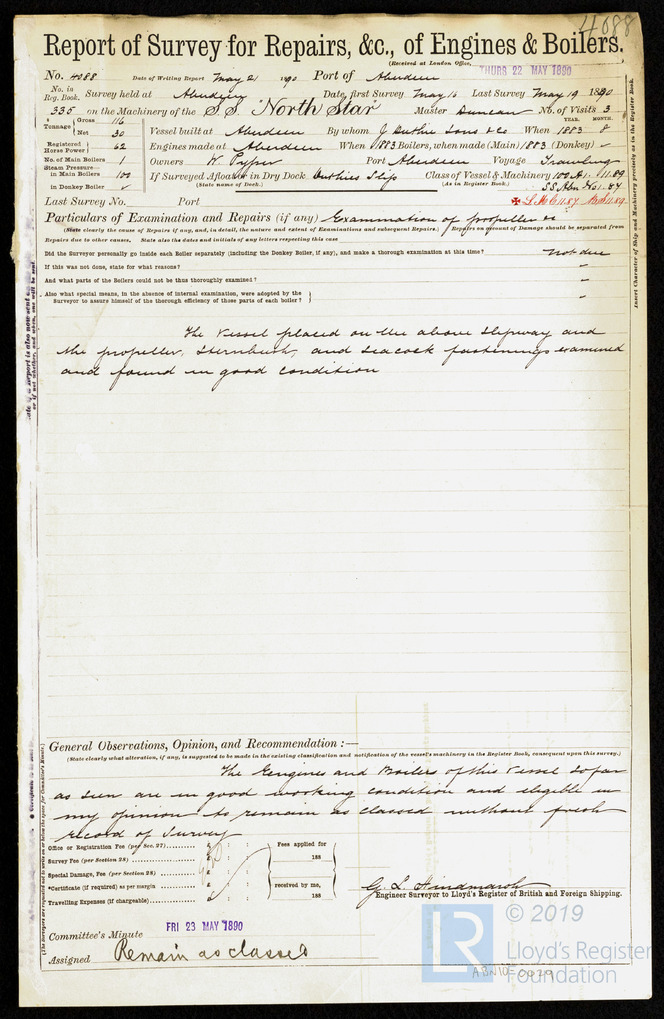 4088
Report of Survey for Repairs, &c., of Engines & Boilers.
(Received at London Office, THURS 22 MAY 1890
No. 4088 Date of Writing Report May 21 1890 Port of Aberdeen
No. in Reg. Book. Survey held at Aberdeen Date, first Survey May 16 Last Survey May 19 1890
335 on the Machinery of the S.S. "North Star" Master Duncan No. of Visits 3
Tonnage Gross 116
Net 30
Vessel built at Aberdeen By whom J. Duthie Sons & Co When YEAR. 1883 MONTH. 8
Registered Horse Power 62
Engines made at Aberdeen When 1883 Boilers, when made (Main) 1883 (Donkey) -
No. of Main Boilers 1
Owners W. Pyper Port Aberdeen Voyage Trawling
Steam Pressure in Main Boilers 100
If Surveyed Afloat or in Dry Dock Duthies Slip Class of Vessel & Machinery 100 A1. 11.89
(State name of Dock.) (As in Register Book.)
in Donkey Boiler
S.S. Abn No 1-87
Last Survey No. Port
L.M.C. 11.87 B.S. 11.89
Particulars of Examination and Repairs (if any) Examination of propeller &c
(State clearly the cause of Repairs if any, and, in detail, the nature and extent of Examinations and subsequent Repairs.) Repairs on account of Damage should be separated from
Repairs due to other causes. State also the dates and initials of any letters respecting this case
Did the Surveyor personally go inside each Boiler separately (including the Donkey Boiler, if any), and make a thorough examination at this time? not due
If this was not done, state for what reasons? -
And what parts of the Boilers could not be thus thoroughly examined? -
Also what special means, in the absence of internal examination, were adopted by the
Surveyor to assure himself of the thorough efficiency of those parts of each boiler? -
The Vessel placed on the above slipway and
the propeller, Sternbush, and seacock fastenings examined
and found in good condition
General Observations, Opinion, and Recommendation :—
(State clearly what alteration, if any, is suggested to be made in the existing classification and notification of the vessel's machinery in the Register Book, consequent upon this survey.)
The Engines and Boilers of this Vessel so far
as seen are in good working condition and eligible in
my opinion to remain as classed without fresh
record of Survey
Office or Registration Fee (per Sec. 27) £ : :
Survey Fee (per Section 28) £ : :
Special Damage, Fee (per Section 28) £ : :
*Certificate (if required) as per margin £ : :
Travelling Expenses (if chargeable) £ : :
Fees applied for
188
received by me,
188
G. L. Hindmarsh
Engineer Surveyor to Lloyd's Register of British and Foreign Shipping.
FRI 23 MAY 1890
Committee's Minute
Assigned Remain as classed
Insert Character of Ship and Machinery precisely as in the Register Book.
LR
© 2019
Lloyd's Register
Foundation
ABN10-0029